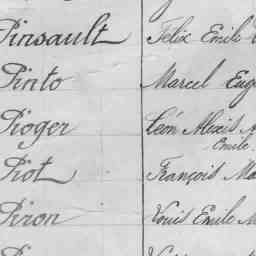 Pinsault Félix Emile
Pinto Marcel Eug
Pioger Léon Alexis
Emile
Piot François Ma
Piron Louis Emile M